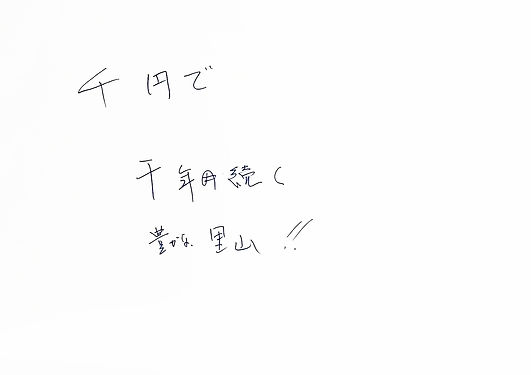 千円で
千年月続く
豊かな里山!!